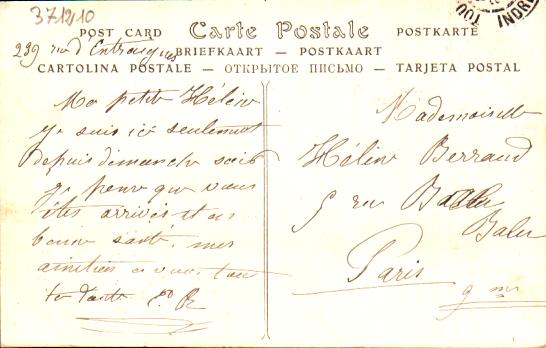 371210
POST CARD Carte Postale POSTKARTE
239 rue d'Entraigues
BRIEFKAART — POSTKAART
CARTOLINA POSTALE — ОТКРЫТОЕ ПИСЬМО — TARJETA POSTAL
TOU INDRE
Ma petite Hélène
Je suis ici seulement
depuis dimanche soir
je pense que vous
êtes arrivés et en
bonne santé. mes
amitiés a vous toute
ta tante
Mademoiselle
Hélène Berraud
5 rue
Baler
Paris